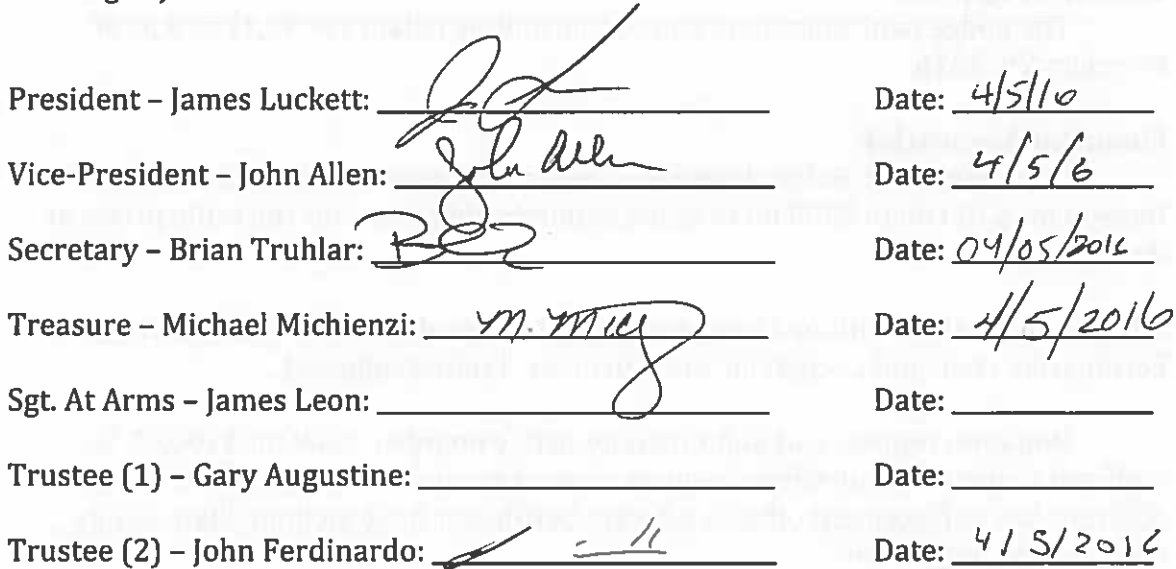 President – James Luckett: Date: 4/5/16
Vice-President – John Allen: John Allen Date: 4/5/6
Secretary – Brian Truhlar: Date: 04/05/2016
Treasure – Michael Michienzi: Date: 4/5/2016
Sgt. At Arms – James Leon: Date:
Trustee (1) – Gary Augustine: Date:
Trustee (2) – John Ferdinardo: Date: 4/5/2016